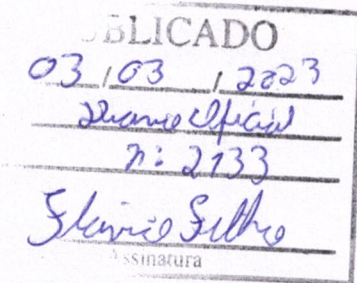 PUBLICADO
03 / 03 / 2023
Diario Oficial
nº 2133
Flavio Filho
Assinatura